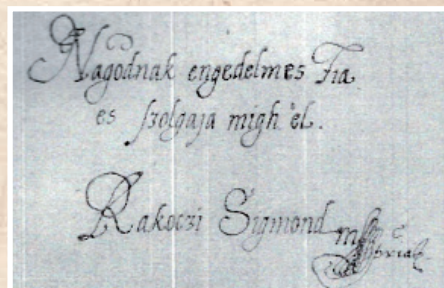 Nagodnak engedelmes Fia
es szolgaja migh èl.
Rakoczi Sigmond